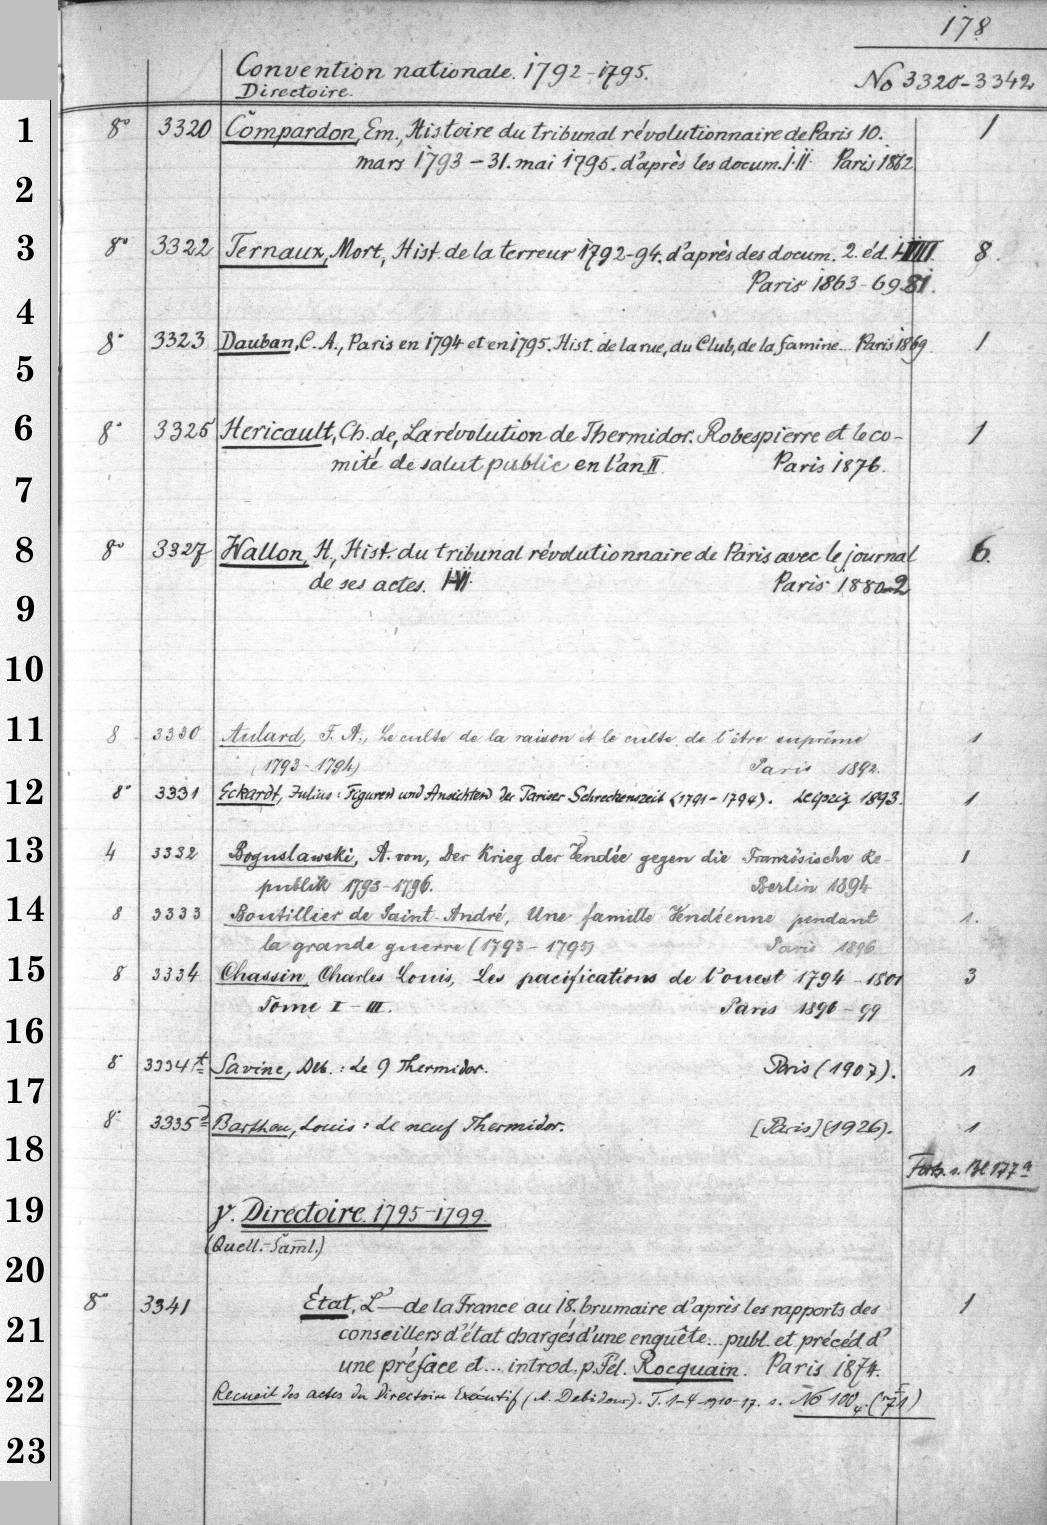 178
Convention nationale. 1792-1795.
Directoire.
No 3320-3342
1
8° 3320 Compardon, Em., Histoire du tribunal révolutionnaire de Paris 10. 1
mars 1793 - 31. mai 1795. d'après les docum. I-II Paris 1862
2
3
8° 3322 Ternaux, Mort, Hist. de la terreur 1792-94. d'après des docum. 2. éd. 8.
Paris 1863-69-81.
4
8° 3323 Dauban, C. A., Paris en 1794 et en 1795. Hist. de la rue, du Club, de la famine... Paris 1869 1
5
6
8° 3325 Hericault, Ch. de, La révolution de Thermidor. Robespierre et le co- 1
mité de salut public en l'an II. Paris 1876.
7
8
8° 3327 Wallon, H., Hist. du tribunal révolutionnaire de Paris avec le journal 6.
de ses actes. I-VI. Paris 1880-2
9
10
11
8 3330 Aulard, F. A., Le culte de la raison et le culte de l'être suprême 1
(1793-1794) Paris 1892.
12
8° 3331 Eckardt, Julius: Figuren und Ansichten der Pariser Schreckenszeit (1791-1794). Leipzig 1893. 1
13
4 3332 Boguslawski, A. von, Der Krieg der Vendée gegen die Französische Re- 1
publik 1793-1796. Berlin 1894
14
8 3333 Boutillier de Saint-André, Une famille Vendéenne pendant 1.
la grande guerre (1793-1795) Paris 1896
15
8 3334 Chassin, Charles Louis, Les pacifications de l'ouest 1794-1801 3
Tome I-III. Paris 1896-99
16
8° 3334 Savine, Alb.: Le 9 Thermidor. Paris (1907). 1
17
8° 3335 Barthou, Louis: Le neuf Thermidor. [Paris] (1926). 1
18
Forts. s. Bl 177a
19
γ. Directoire. 1795-1799
(Quell.-Saml.)
20
8° 3341 État, L'— de la France au 18. brumaire d'après les rapports des 1
21
conseillers d'état chargés d'une enquête... publ. et précéd. d'
une préface et... introd. p. Fél. Rocquain. Paris 1874.
22
Recueil des actes du Directoire Exécutif (A. Debidour). T. 1-4 1910-17. s. No 100
23